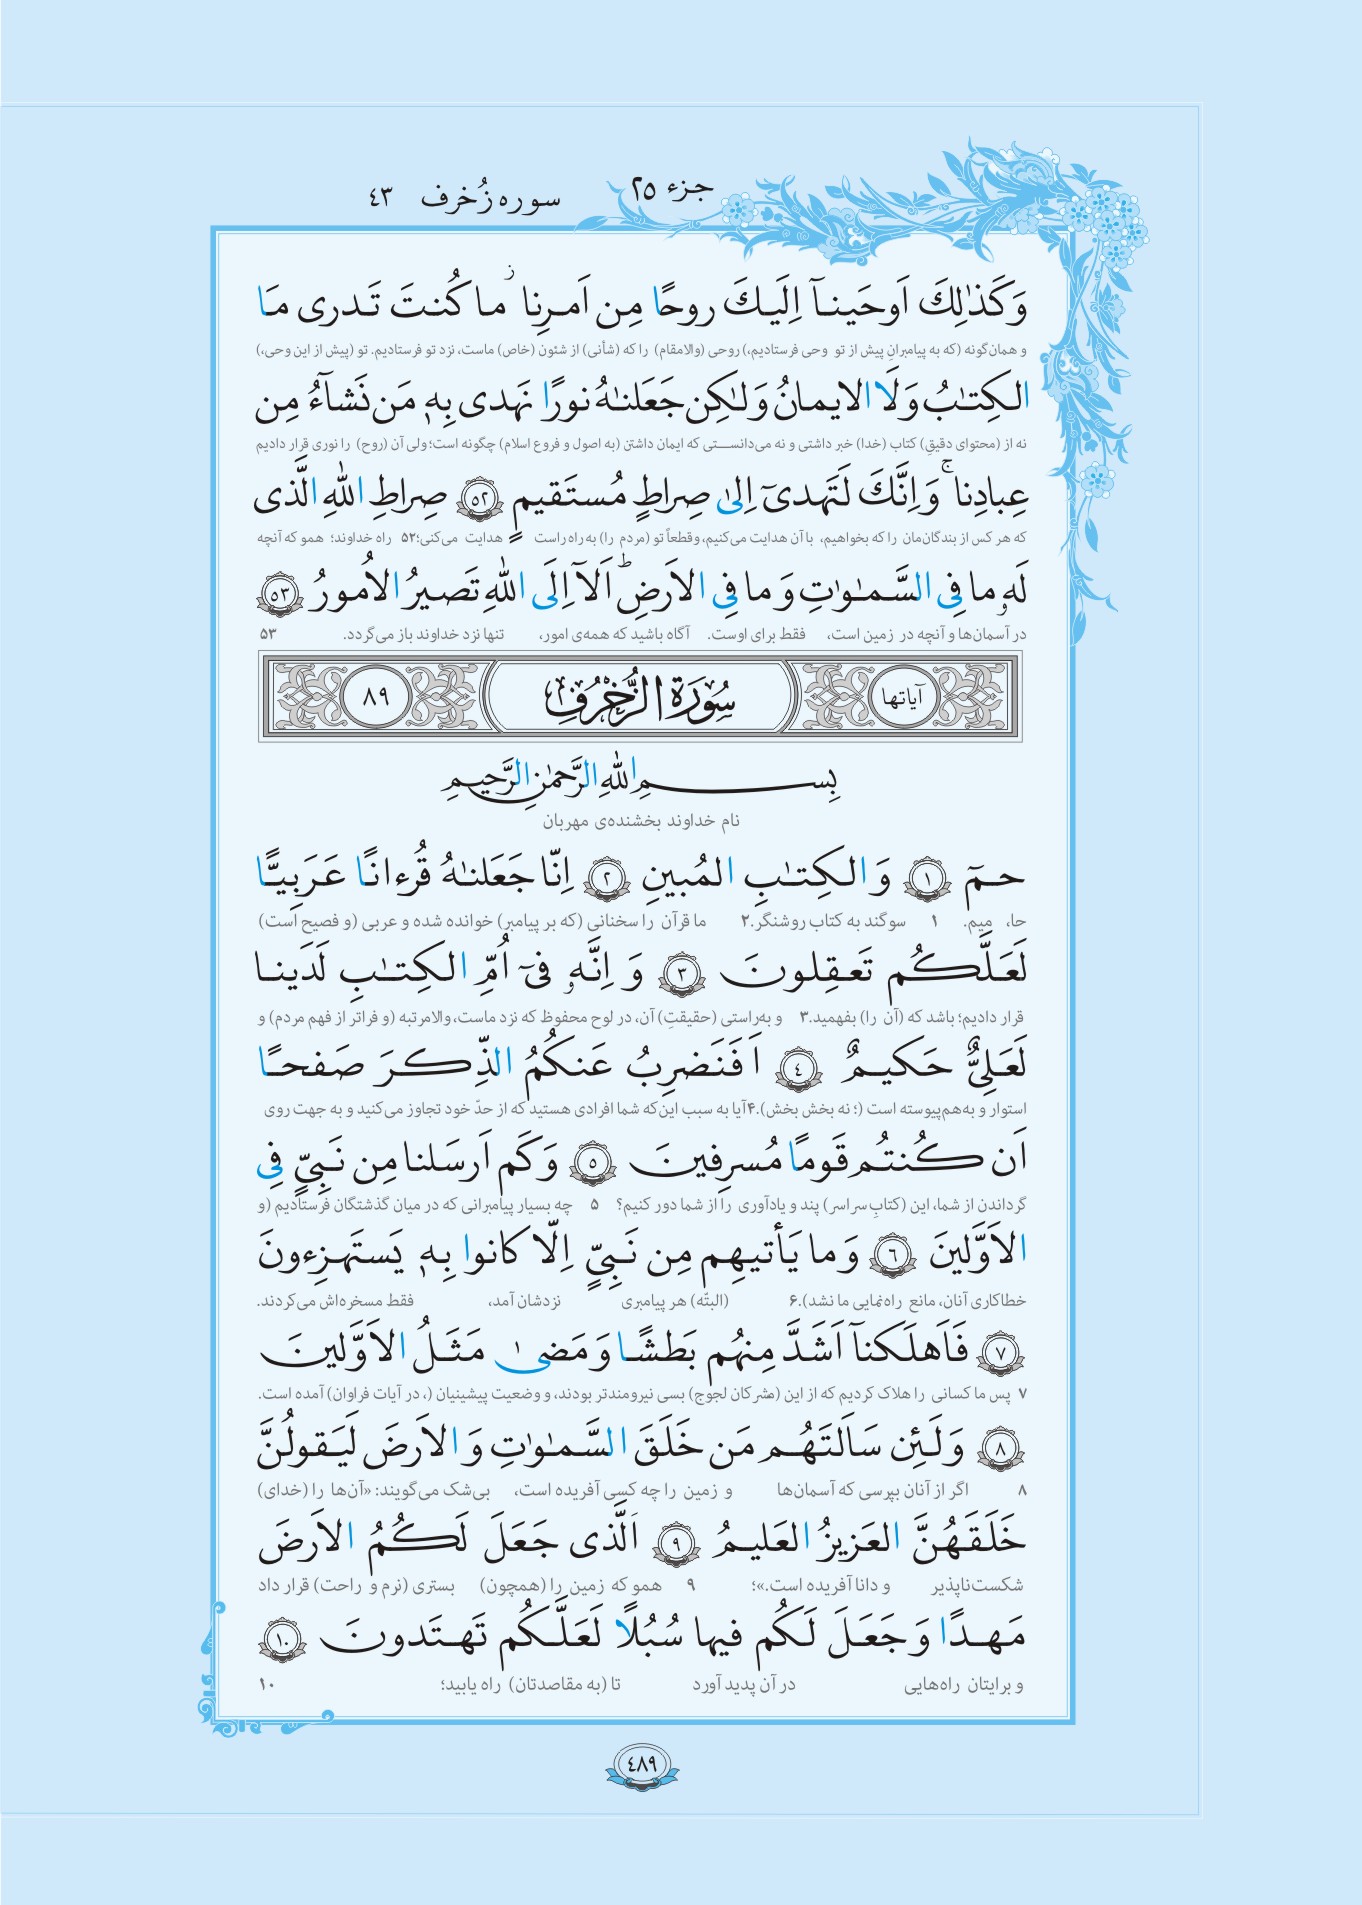 جزء ٢٥
سوره زُخرف ٤٣
وَكَذٰلِكَ اَوحَينآ اِلَيكَ روحًا مِن اَمرِنا ۚ ما كُنتَ تَدرى مَا
و همان‌گونه (که به پیامبرانِ پیش از تو وحی فرستادیم،) روحی (والامقام) را که (شأنی) از شئون (خاص) ماست، نزد تو فرستادیم. تو (پیش از این وحی،)
الكِتٰبُ وَلَا الايمانُ وَلٰكِن جَعَلنٰهُ نورًا نَهدى بِهٖ مَن نَشآءُ مِن
نه از (محتوای دقیقِ) کتاب (خدا) خبر داشتی و نه می‌دانستی که ایمان داشتن (به اصول و فروع اسلام) چگونه است؛ ولی آن (روح) را نوری قرار دادیم
عِبادِنا ۚ وَاِنَّكَ لَتَهدىٓ اِلىٰ صِراطٍ مُستَقيمٍ ﴿٥٢﴾ صِراطِ اللّٰهِ الَّذى
که هر کس از بندگان‌مان را که بخواهیم، با آن هدایت می‌کنیم، و قطعاً تو (مردم را) به راه راست هدایت می‌کنی؛ ۵۲ راه خداوند؛ همو که آنچه
لَهٗ ما فِى السَّمٰوٰتِ وَ ما فِى الاَرضِ ۗ اَلآ اِلَى اللّٰهِ تَصيرُ الاُمورُ ﴿٥٣﴾
در آسمان‌ها و آنچه در زمین است، فقط برای اوست. آگاه باشید که همه‌ی امور، تنها نزد خداوند باز می‌گردد. ۵۳
آیاتها سُورَةُ الزُّخرُفِ ٨٩
بِسمِ اللّٰهِ الرَّحمٰنِ الرَّحيمِ
نام خداوند بخشنده‌ی مهربان
حمٓ ﴿١﴾ وَ الكِتٰبِ المُبينِ ﴿٢﴾ اِنّا جَعَلنٰهُ قُرءانًا عَرَبِيًّا
حا، میم. ۱ سوگند به کتاب روشنگر. ۲ ما قرآن را سخنانی (که بر پیامبر) خوانده شده و عربی (و فصیح است)
لَعَلَّكُم تَعقِلونَ ﴿٣﴾ وَ اِنَّهٗ فىٓ اُمِّ الكِتٰبِ لَدَينا
قرار دادیم؛ باشد که (آن را) بفهمید. ۳ و به‌راستی (حقیقتِ) آن، در لوح محفوظ که نزد ماست، والامرتبه (و فراتر از فهم مردم) و
لَعَلِىٌّ حَكيمٌ ﴿٤﴾ اَ فَنَضرِبُ عَنكُمُ الذِّكرَ صَفحًا
استوار و به‌هم‌پیوسته است (؛ نه بخش بخش). ۴ آیا به سبب این‌که شما افرادی هستید که از حدّ خود تجاوز می‌کنید و به جهت روی
اَن كُنتُم قَومًا مُسرِفينَ ﴿٥﴾ وَكَم اَرسَلنا مِن نَبِىٍّ فِى
گرداندن از شما، این (کتابِ سراسر) پند و یادآوری را از شما دور کنیم؟ ۵ چه بسیار پیامبرانی که در میان گذشتگان فرستادیم (و
الاَوَّلينَ ﴿٦﴾ وَ ما يَأتيهِم مِن نَبِىٍّ اِلّا كانوا بِهٖ يَستَهزِءونَ
خطاکاری آنان، مانع راهنمایی ما نشد). ۶ (البتّه) هر پیامبری نزدشان آمد، فقط مسخره‌اش می‌کردند.
﴿٧﴾ فَاَهلَكنآ اَشَدَّ مِنهُم بَطشًا وَ مَضىٰ مَثَلُ الاَوَّلينَ
۷ پس ما کسانی را هلاک کردیم که از این (مشرکان لجوج) بسی نیرومندتر بودند، و وضعیت پیشینیان (، در آیات فراوان) آمده است.
﴿٨﴾ وَلَئِن سَاَلتَهُم مَن خَلَقَ السَّمٰوٰتِ وَ الاَرضَ لَيَقولُنَّ
۸ اگر از آنان بپرسی که آسمان‌ها و زمین را چه کسی آفریده است، بی‌شک می‌گویند: «آن‌ها را (خدای)
خَلَقَهُنَّ العَزيزُ العَليمُ ﴿٩﴾ اَلَّذى جَعَلَ لَكُمُ الاَرضَ
شکست‌ناپذیر و دانا آفریده است.»؛ ۹ همو که زمین را (همچون) بستری (نرم و راحت) قرار داد
مَهدًا وَ جَعَلَ لَكُم فيها سُبُلًا لَعَلَّكُم تَهتَدونَ ﴿١٠﴾
و برایتان راه‌هایی در آن پدید آورد تا (به مقاصدتان) راه یابید؛ ۱۰
٤٨٩